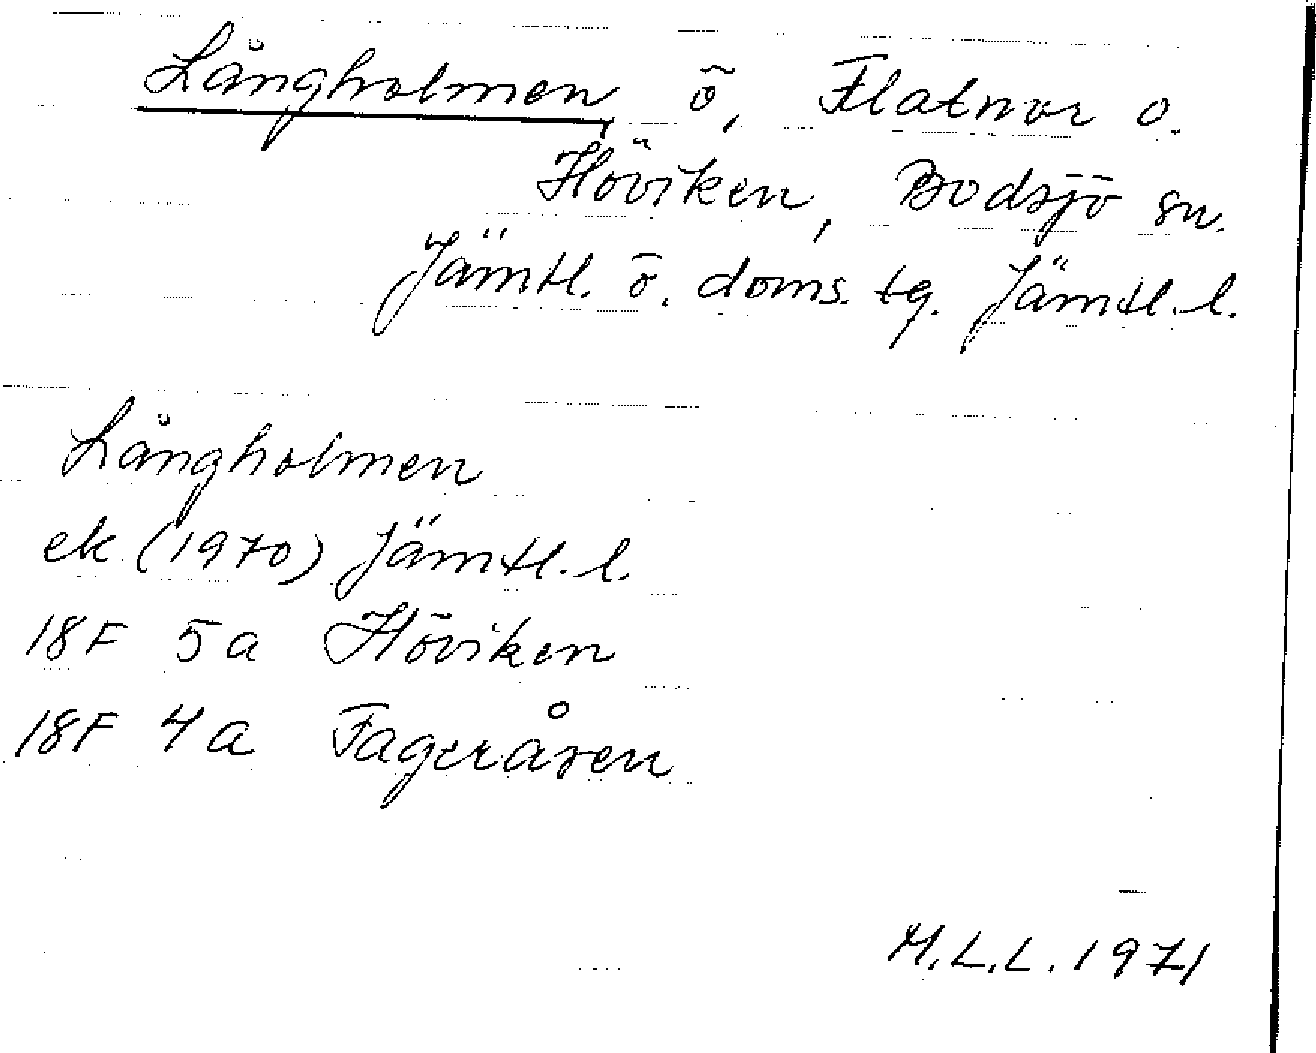 Långholmen ö, Flatnor o.
Höviken, Bodsjö sn.
Jämtl. ö. doms. tg. Jämtl. l.
Långholmen
ek (1970) Jämtl. l.
18F 5a Höviken
18F 4a Fageråsen
M.L.L. 1971